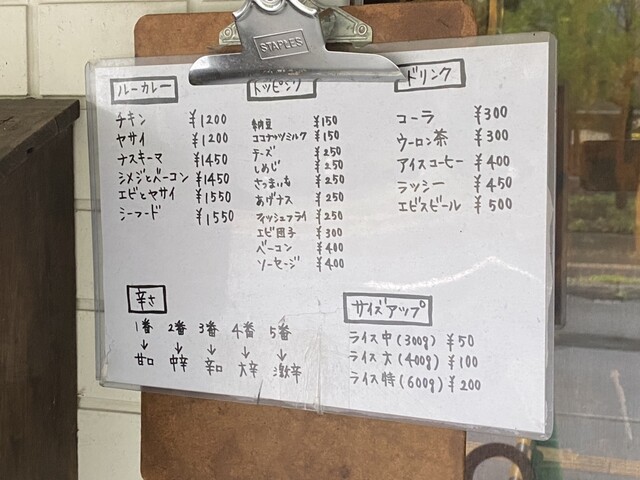 STAPLES
ルーカレー
チキン ¥1200
ヤサイ ¥1200
ナスキーマ ¥1450
シメジとベーコン ¥1450
エビとヤサイ ¥1550
シーフード ¥1550
トッピング
納豆 ¥150
ココナッツミルク ¥150
チーズ ¥250
しめじ ¥250
さつまいも ¥250
あげナス ¥250
フィッシュフライ ¥250
エビ団子 ¥300
ベーコン ¥400
ソーセージ ¥400
ドリンク
コーラ ¥300
ウーロン茶 ¥300
アイスコーヒー ¥400
ラッシー ¥450
エビスビール ¥500
辛さ
1番 2番 3番 4番 5番
↓ ↓ ↓ ↓ ↓
甘口 中辛 辛口 大辛 激辛
サイズアップ
ライス中(300g) ¥50
ライス大(400g) ¥100
ライス特(600g) ¥200